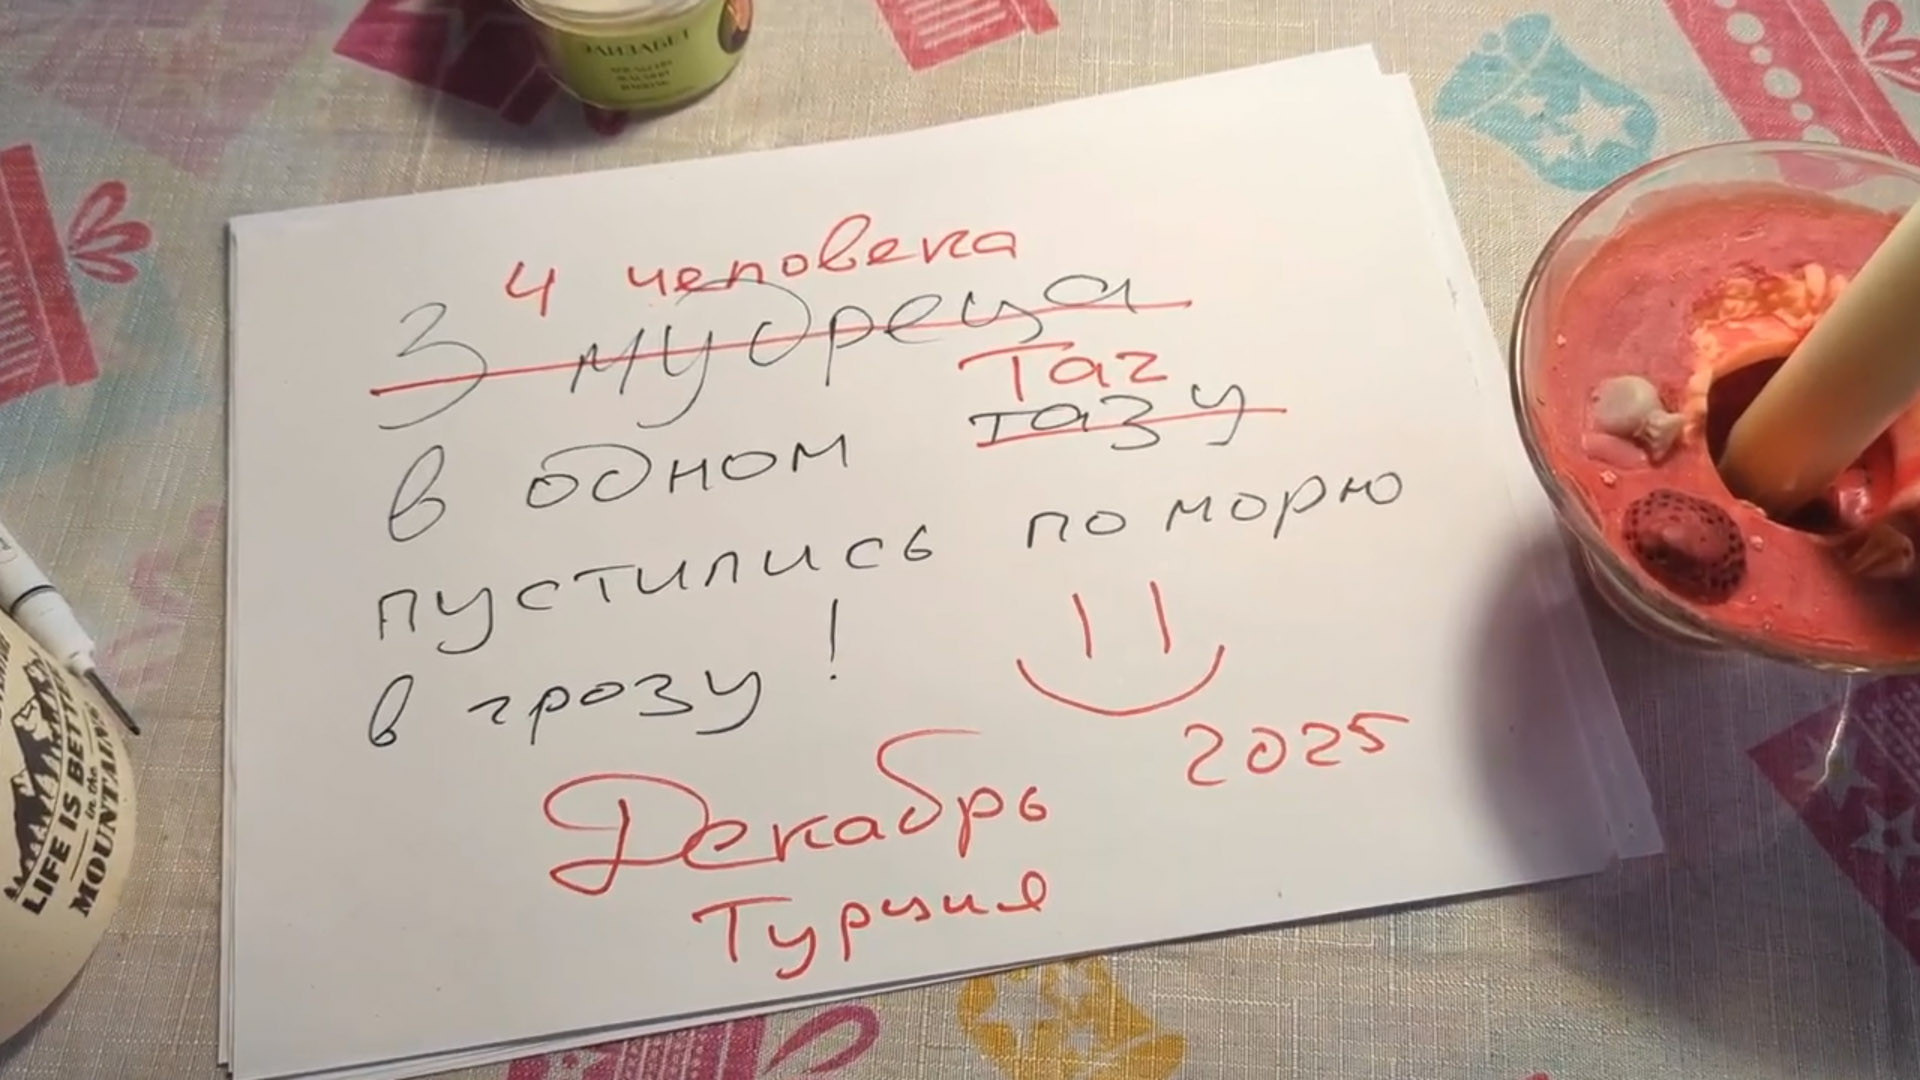 ЭЛИЗАБЕТ
4 человека
3 мудреца
Таz
в одном тазу
пустились по морю
в грозу!
Декабрь 2025
Турция
LIFE IS BETTER
in the
MOUNTAINS